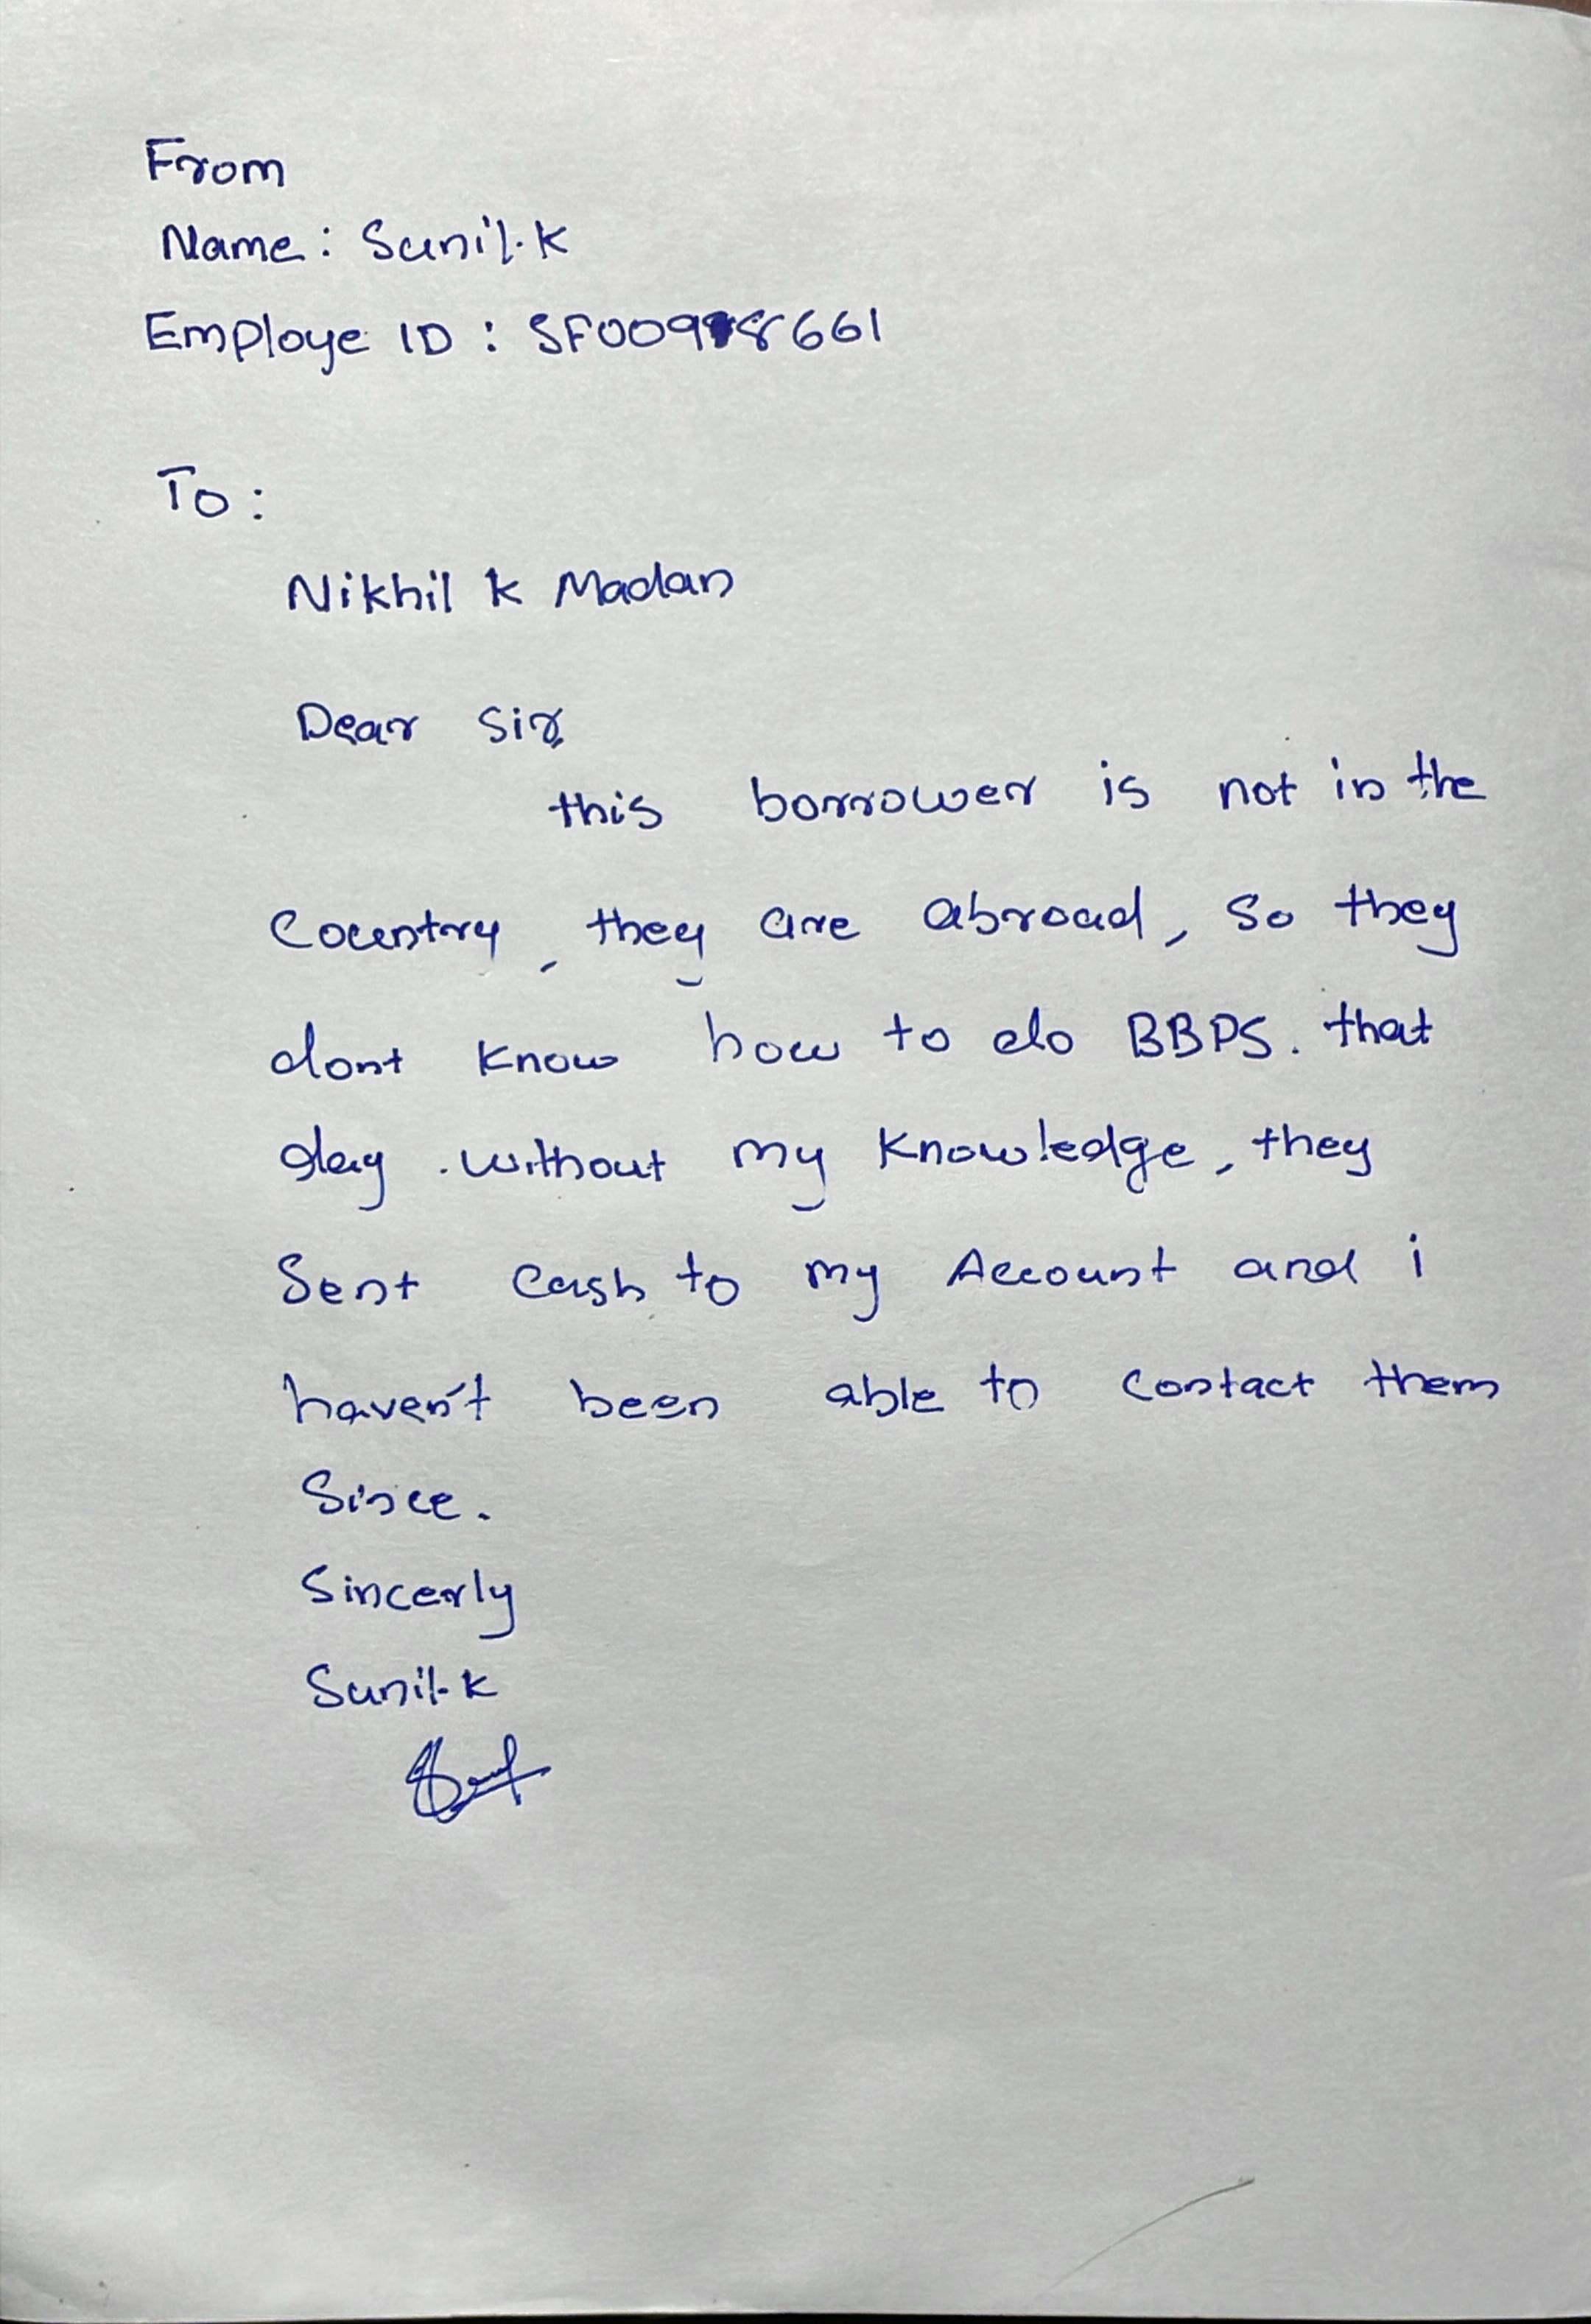 From
Name : Sunil.K
Employe ID : SF0098661
To :
Nikhil K Madan
Dear Sir,
this borrower is not in the
Country, they are abroad, So they
dont know how to do BBPS. that
day. without my knowledge, they
Sent Cash to my Account and i
haven't been able to contact them
Since.
Sincerly
Sunil.K